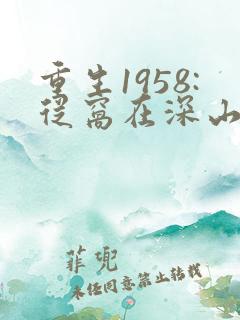 重生1958:
从窝在深山
菲兜
未经同意禁止转载